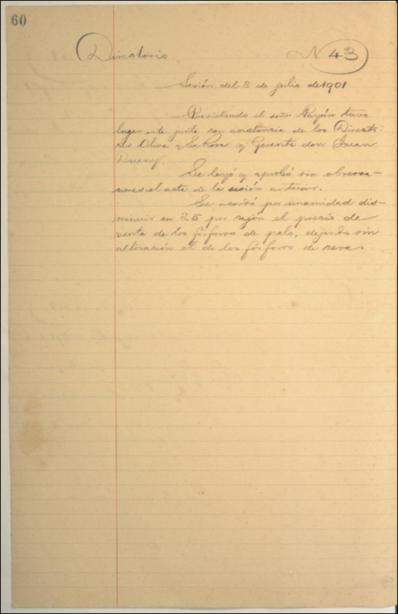 60
Directorio N 43
Sesión del 8 de julio de 1901
Presidiendo el señor Payán tuvo
lugar esta junta con asistencia de los Directo
res Oliva y La Rosa y Gerente don Juan
Se leyó y aprobó sin observa
ciones el acta de la sesión anterior.
Se acordó por unanimidad dis-
minuir en por cajón el precio de
venta de los fósforos de palo, dejando sin
alteración el de los fósforos de cera.